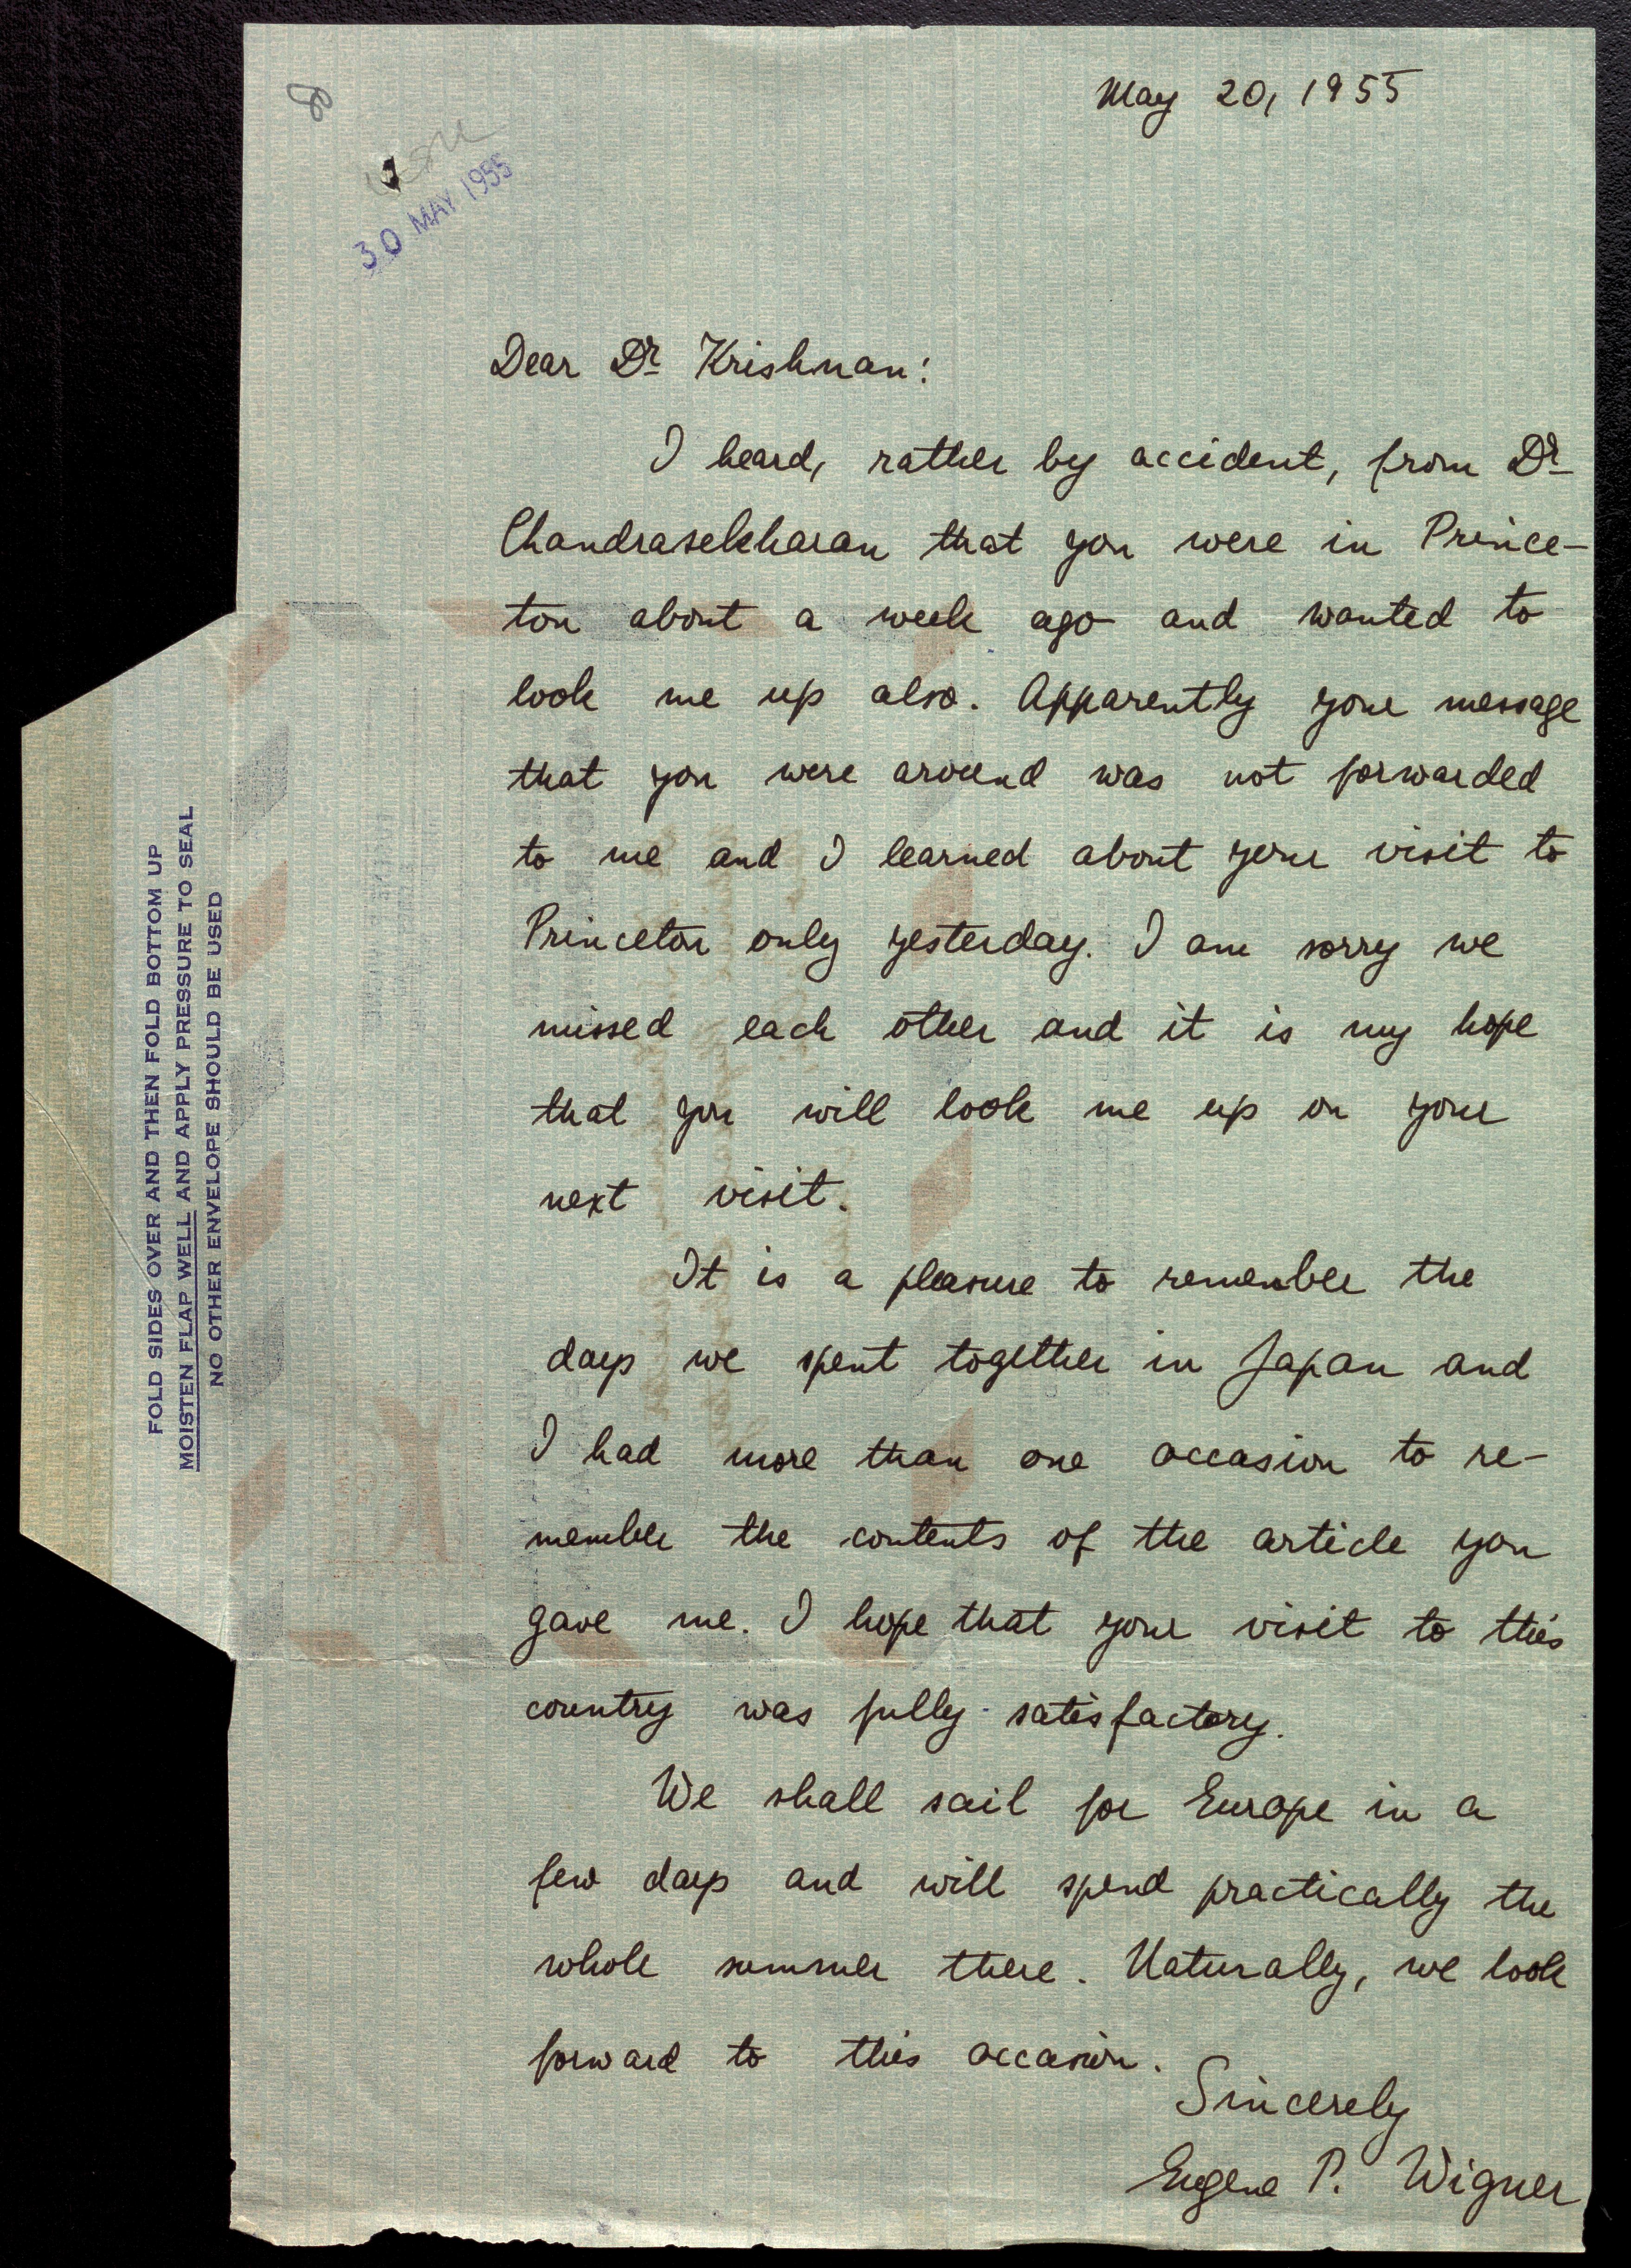 May 20, 1955
8
30 MAY 1955
Dear Dr Krishnan:
I heard, rather by accident, from Dr
Chandrasekharan that you were in Prince-
ton about a week ago and wanted to
look me up also. Apparently your message
that you were around was not forwarded
to me and I learned about your visit to
Princeton only yesterday. I am sorry we
missed each other and it is my hope
that you will look me up on your
next visit.
It is a pleasure to remember the
days we spent together in Japan and
I had more than one occasion to re-
member the contents of the article you
gave me. I hope that your visit to this
country was fully satisfactory.
We shall sail for Europe in a
few days and will spend practically the
whole summer there. Naturally, we look
forward to this occasion.
Sincerely
Eugene P. Wigner
FOLD SIDES OVER AND THEN FOLD BOTTOM UP
MOISTEN FLAP WELL AND APPLY PRESSURE TO SEAL
NO OTHER ENVELOPE SHOULD BE USED